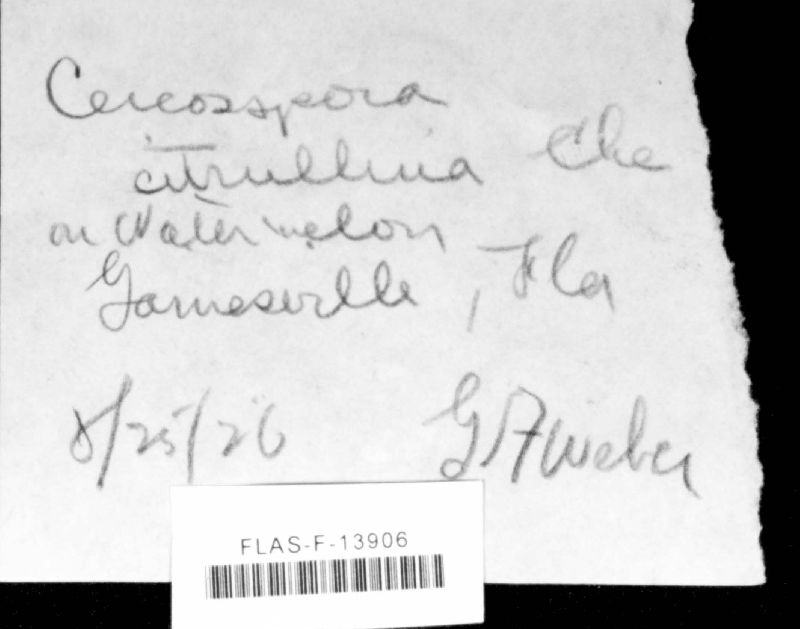 Cercospora
citrullina Cke
on Watermelon
Gainesville, Fla
8/25/26 G F Weber
FLAS-F-13906